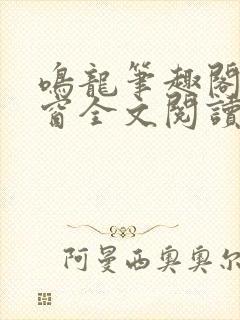 鳴龍筆趣閣
窗全文閱讀
阿曼西奧奧尔